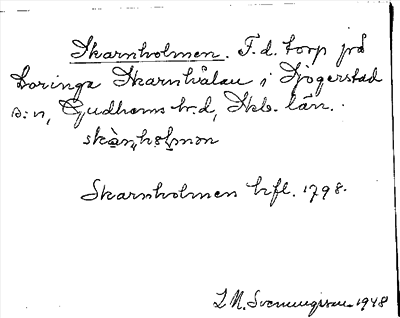 Skarnholmen. F.d. torp på
Loringa Skarnhålan i Sjogerstad
s:n, Gudhems h:d, Skb. län.
skànholmon
Skarnholmen hfl. 1798.
L M. Svenungsson 1948